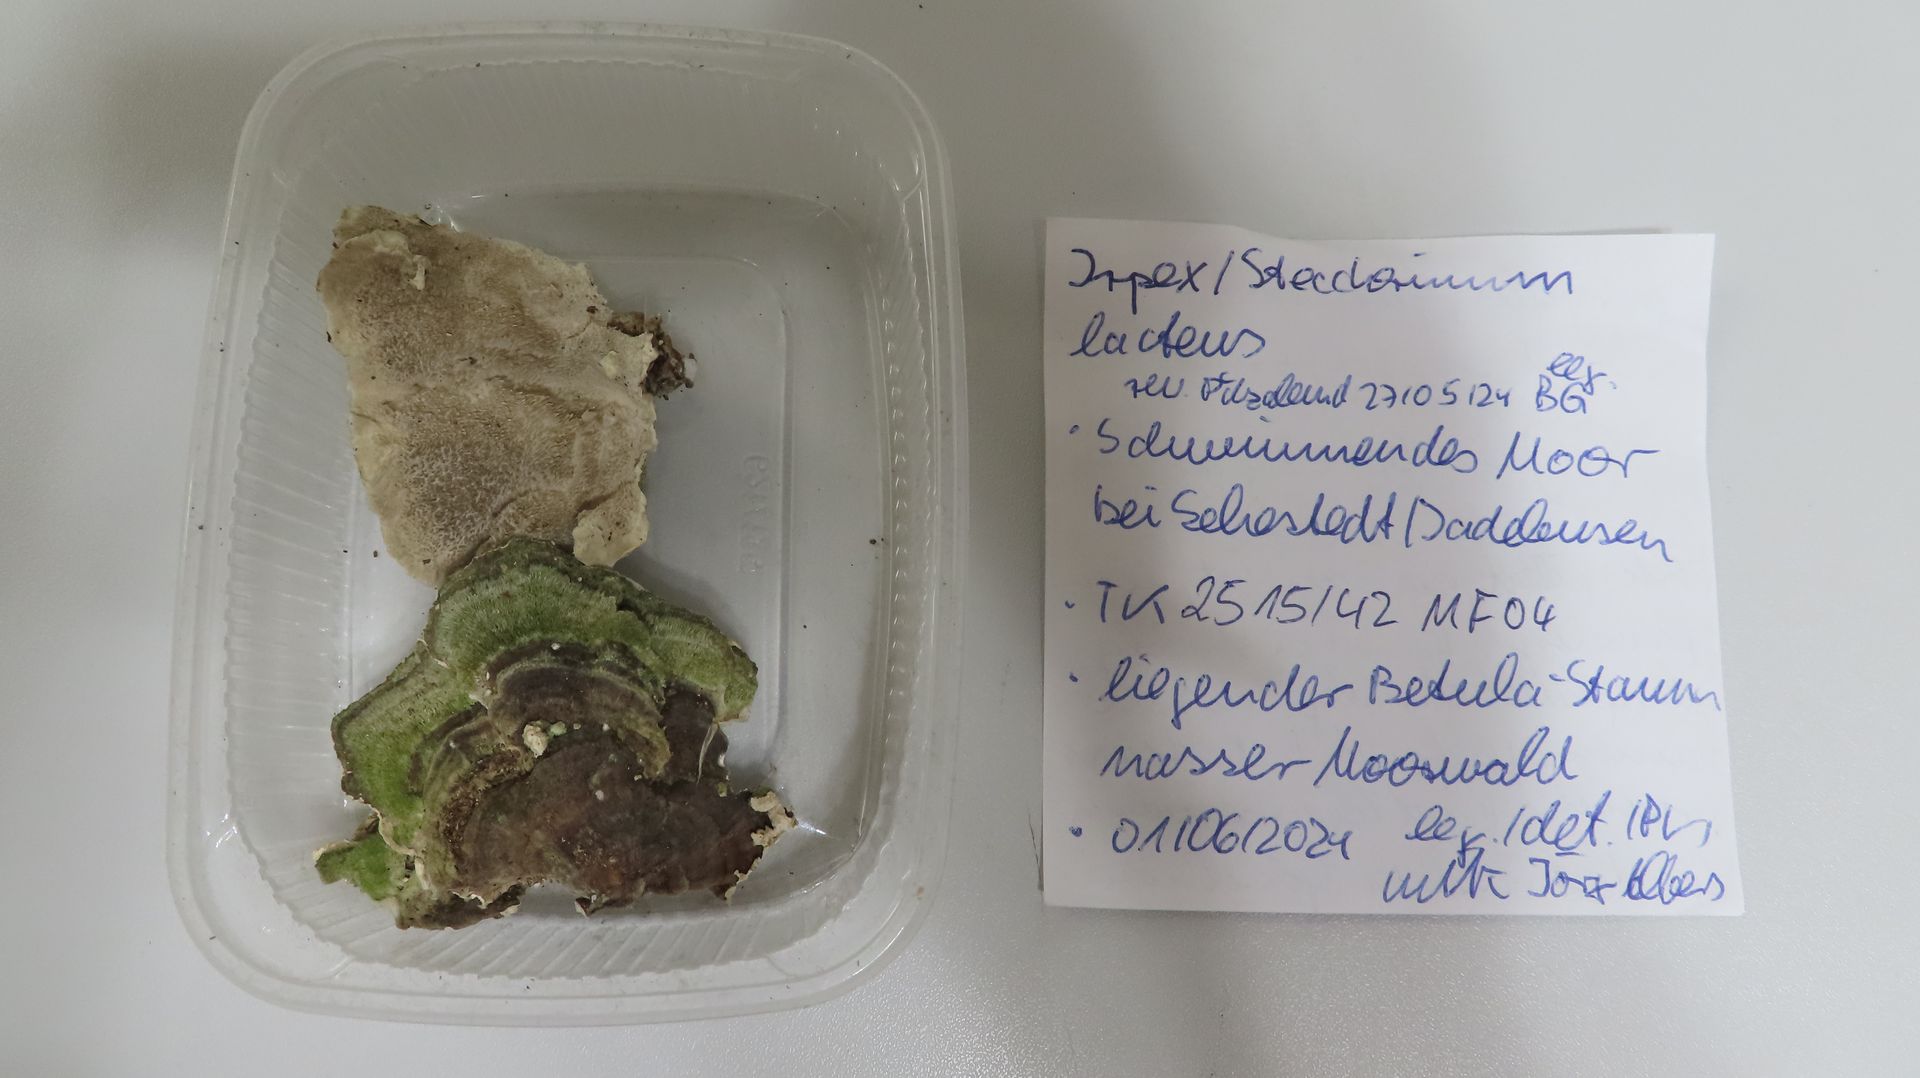 Irpex/Steccherinum
lacteus
rev. Pilzabend 27/05/24 leg. BG
• Schwimmendes Moor
bei Sehestedt/Jadebusen
• TK 2515/42 MF04
• liegender Betula-Stamm
nasser Moorwald
• 01/06/2024 leg./det.
Jörg Albers